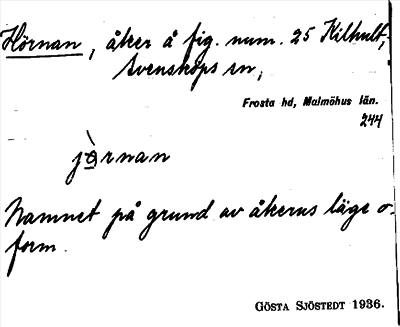 Hörnan, åker å fig. num. 25 Kilhult,
Svensköps sn,
Frosta hd, Malmöhus län.
244
jò̱rnan
Namnet på grund av åkerns läge o.
form.
GÖSTA SJÖSTEDT 1936.